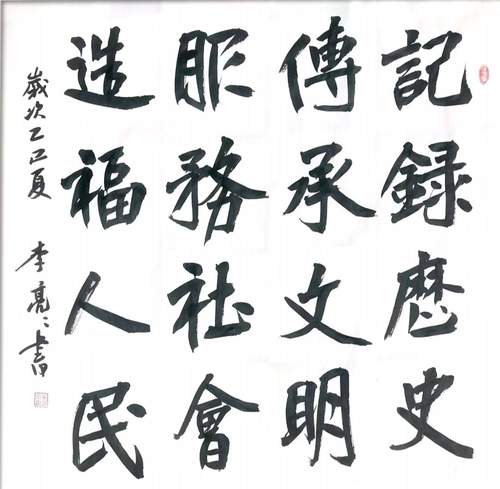 記錄厯史
傳承文明
服務社會
造福人民
歲次乙巳夏 李亮〻書